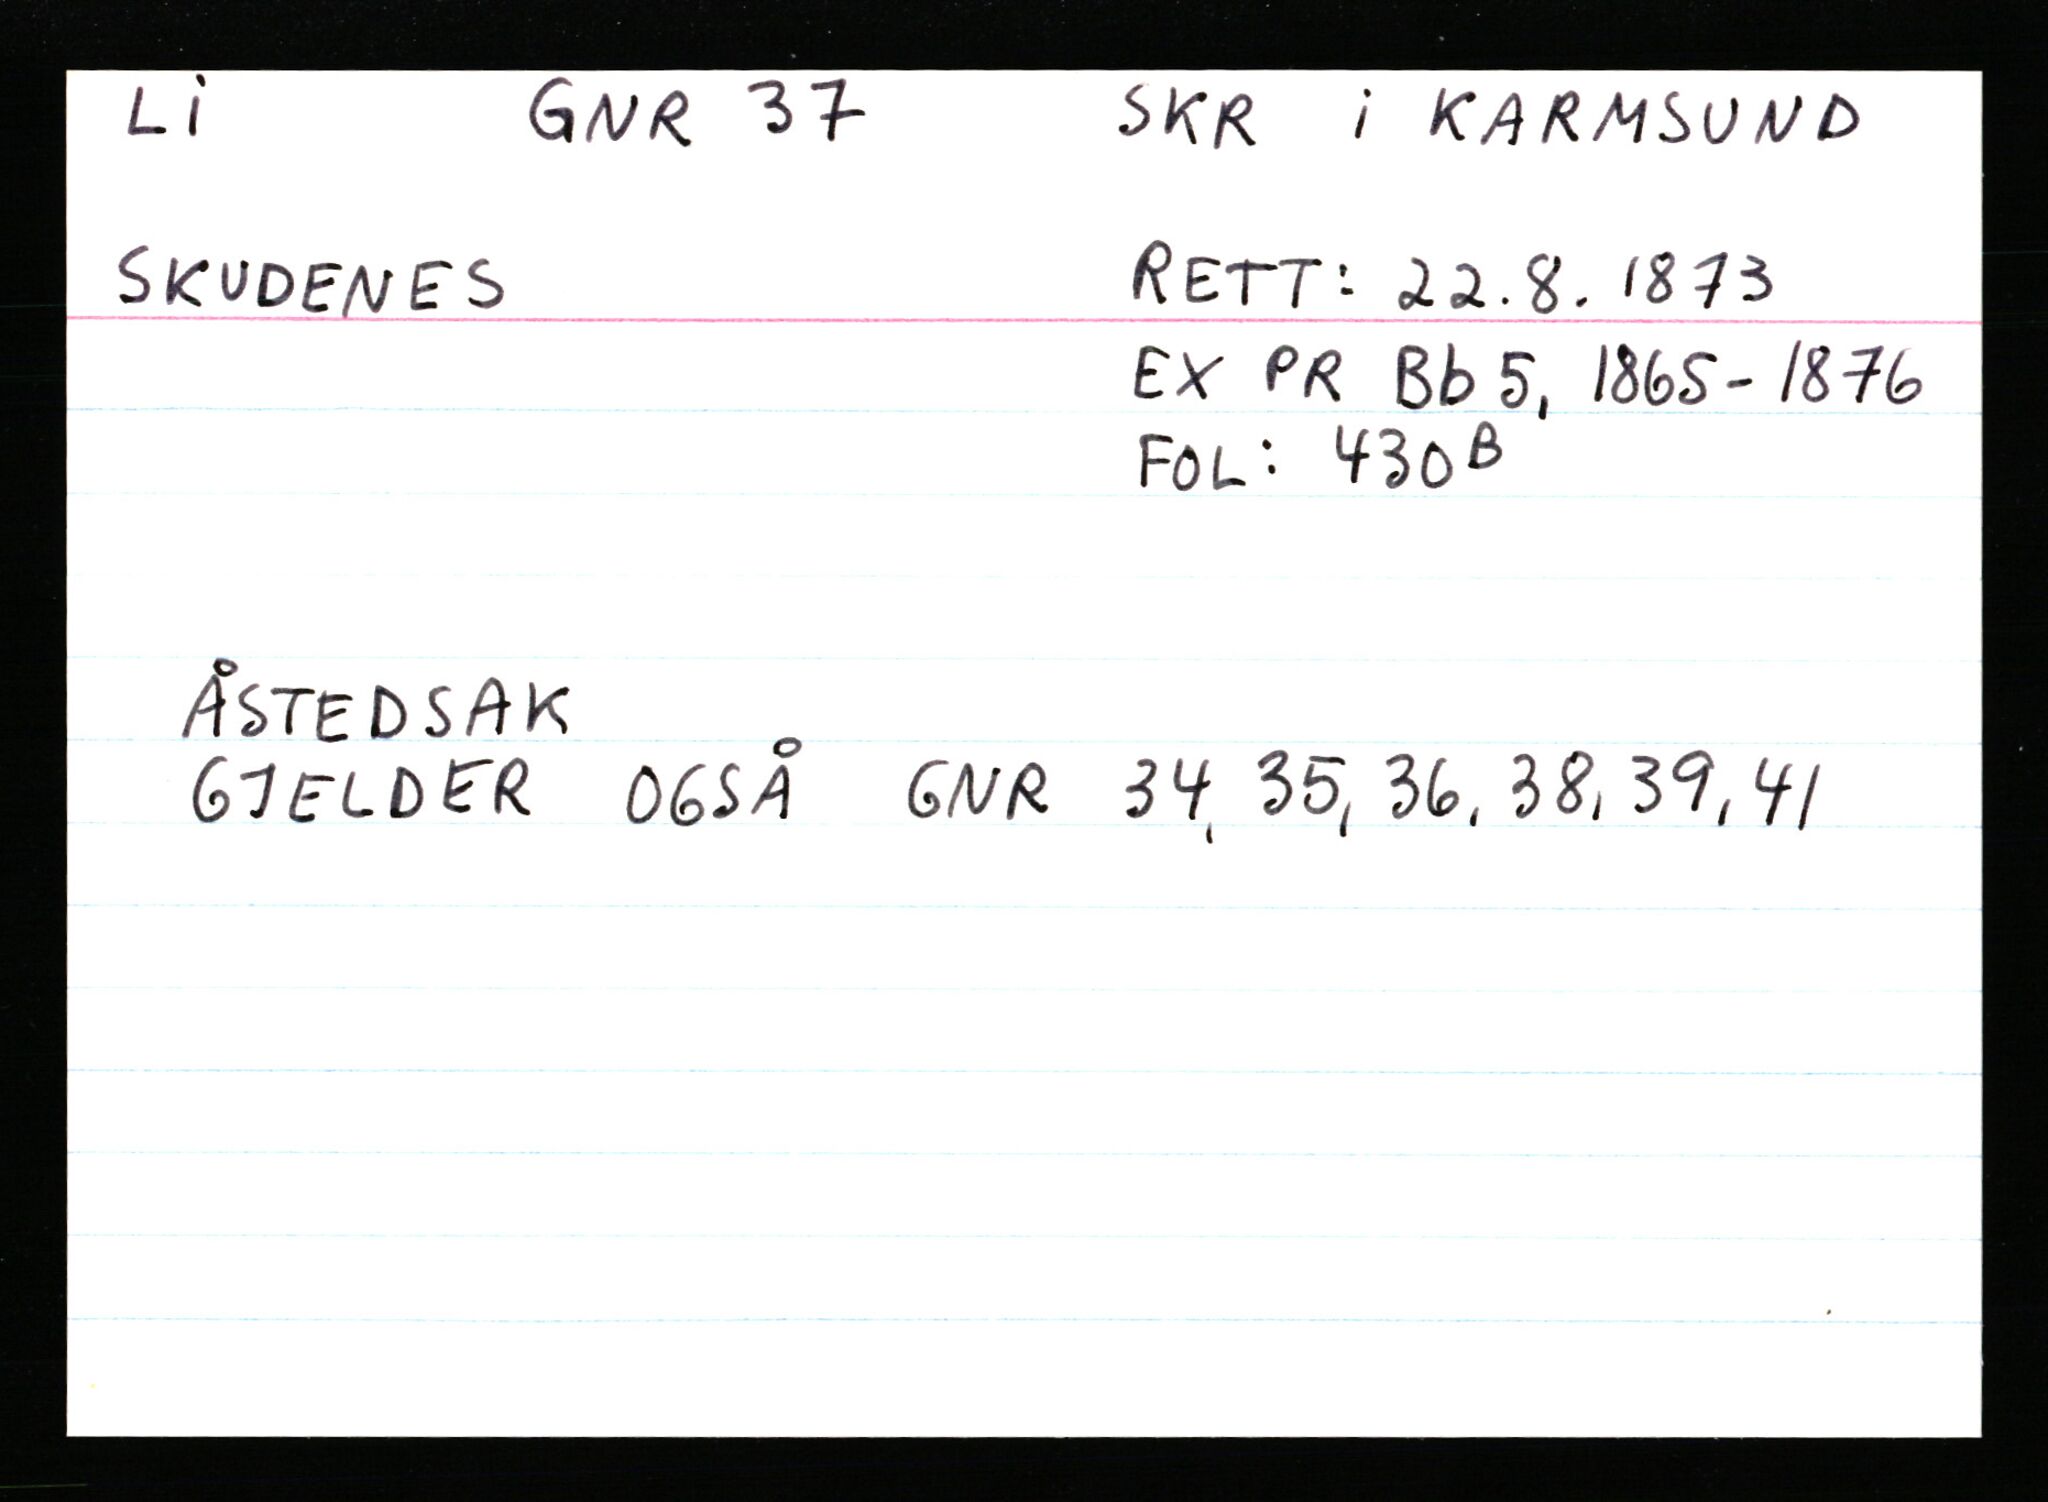 Li GNR 37 SKR i KARMSUND
SKUDENES RETT: 22.8.1873
EX PR Bb 5, 1865-1876
FOL: 430B
ÅSTEDSAK
GJELDER OGSÅ GNR 34, 35, 36, 38, 39, 41